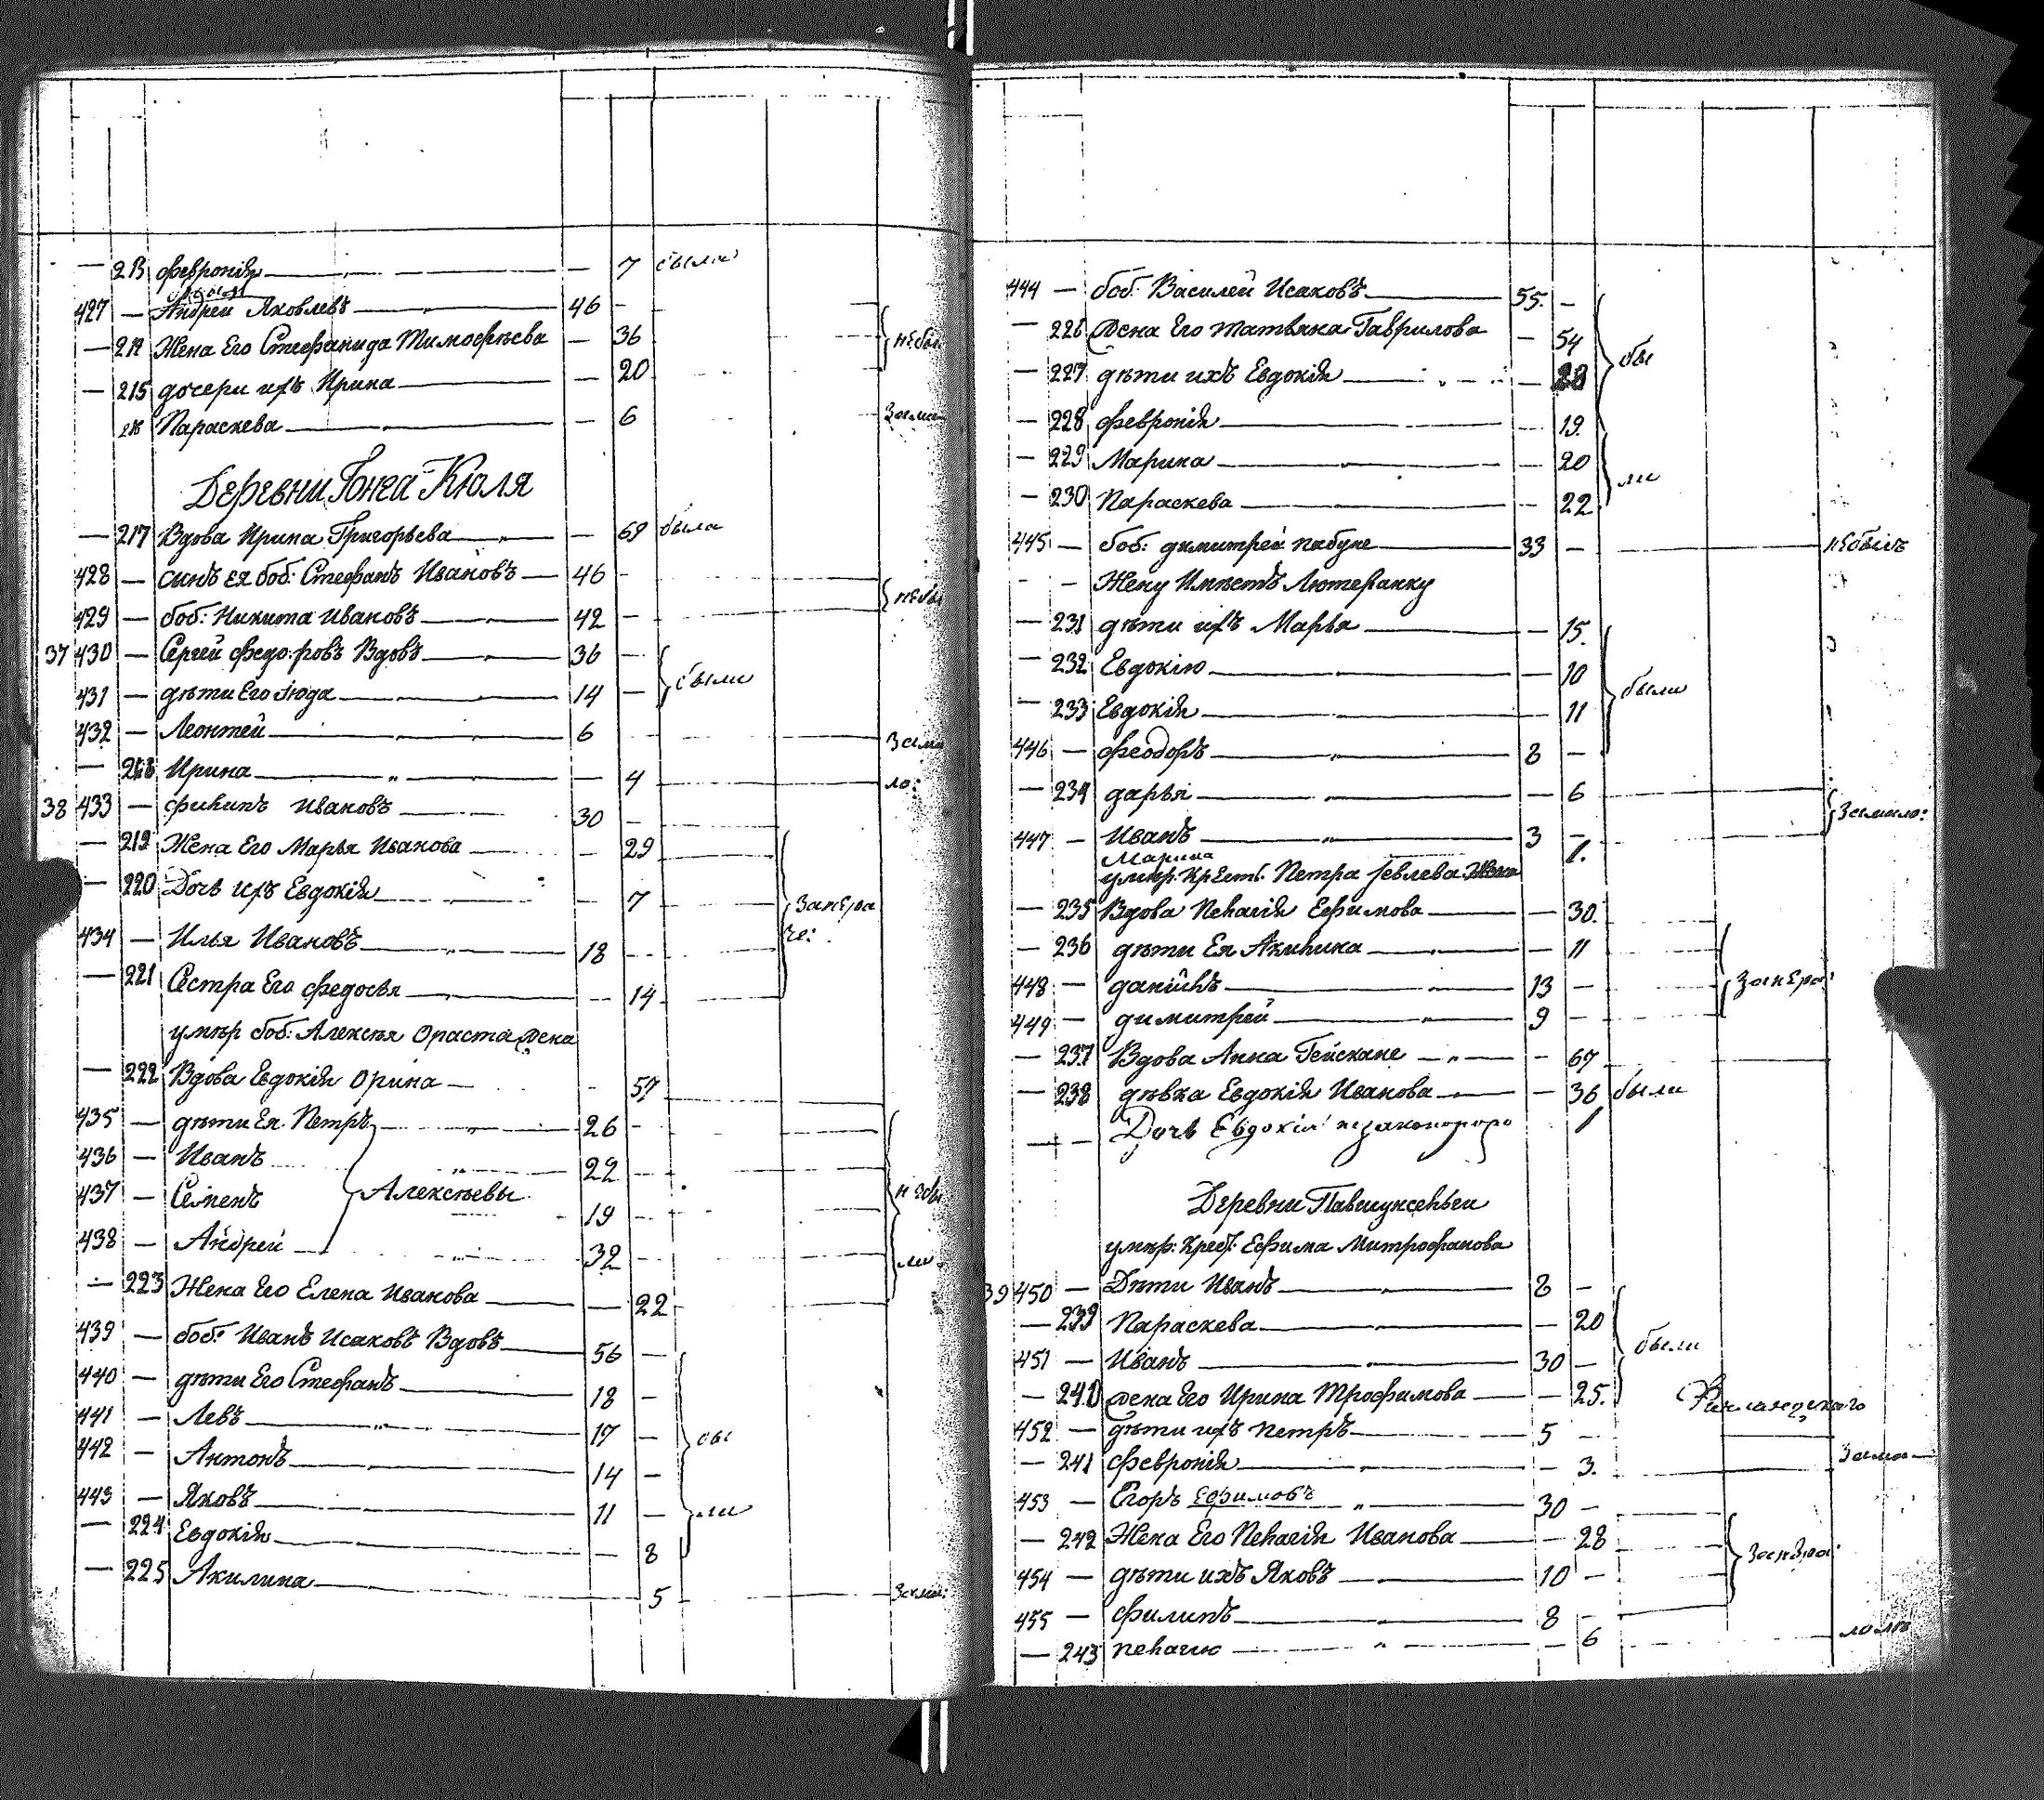 — 213 Февронія — — 7 были
427 — Андрей Яковлевъ — 46 —
— 214 Жена Его Стефанида Тимофѣева — 36 небы
— 215 дочери ихъ Ирина — 20
216 Параскева — 6 Замал
Деревни Гонга-Кюля
— 217 Вдова Ирина Григорьева — 69 была
428 — синъ ея боб: Стефанъ Ивановъ — 46 —
429 — боб: Никита Ивановъ — 42 — небы
37 430 — Сергей Федоровъ Вдовъ — 36 —
431 — дѣти Его Іюда — 14 — были
432 — Леонтей — 6 Зама
— 218 Ирина — 4 ло:
38 433 — Филипъ Ивановъ — 30 —
— 219 Жена Его Марья Иванова — 29
— 220 Дочь ихъ Евдокія — 7 Занера
че:
434 — Илья Ивановъ — 18 —
— 221 Сестра Его Федосья — 14
умѣр боб: Алексѣя Ораста жена
— 222 Вдова Евдокія Орина — 57
435 — дѣти Ея Петръ — 26 —
436 — Иванъ — 22 —
437 — Семенъ Алексѣевы — 19 — небы
438 — Андрей — 32 — ли
— 223 Жена Его Елена Иванова — 22
439 — боб: Иванъ Исаковъ Вдовъ — 56 —
440 — дѣти Его Стефанъ — 18 —
441 — Левъ — 17 — бы
442 — Антонъ — 14 —
443 — Яковъ — 11 — ли
— 224 Евдокія — 8
— 225 Акилина — 5 Замал:
444 — боб: Василей Исаковъ — 55. —
— 226 Жена Его Татьяна Гаврилова — 54 бы
— 227 дѣти ихъ Евдокія — 28
— 228 Февронія — 19.
— 229 Марина — 20 ли
— 230 Параскева — 22
445 — боб: Димитрей Пабуне — 33 — небылъ
- - Жену Имѣетъ Лютеранку
— 231 дѣти ихъ Марья — 15.
— 232 Евдокію — 10
— 233 Евдокія — 11 были
446 — Феодоръ — 8 —
— 234 Дарья — 6 Замало:
447 — Иванъ — 3 —
Марина 1.
умѣр. Крест. Петра Іевлева Жена
— 235 Вдова Пелагія Ефимова — 30.
— 236 дѣти Ея Акилина — 11
448 — Даніилъ — 13 — Занера:
449 — Димитрей — 9 —
— 237 Вдова Анна Гейскане — 67
— 238 дѣвка Евдокія Иванова — 36 были
— — Дочь Евдокія незаконноро 1
Деревни
умѣр: Крест: Ефима Митрофанова
39 450 — Дѣти Иванъ — 8 —
— 239 Параскева — 20 были
451 — Иванъ — 30 —
— 240 Жена Его Ирина Трофимова — 25. Финляндскаго
452 — дѣти ихъ Петръ — 5 —
— 241 Февронія — 3. Замал
453 — Егоръ Ефимовъ — 30 —
— 242 Жена Его Пелагія Иванова — 28
454 — дѣти ихъ Яковъ — 10 — Занера:
455 — Филипъ — 8 —
— 243 Пелагію — 6